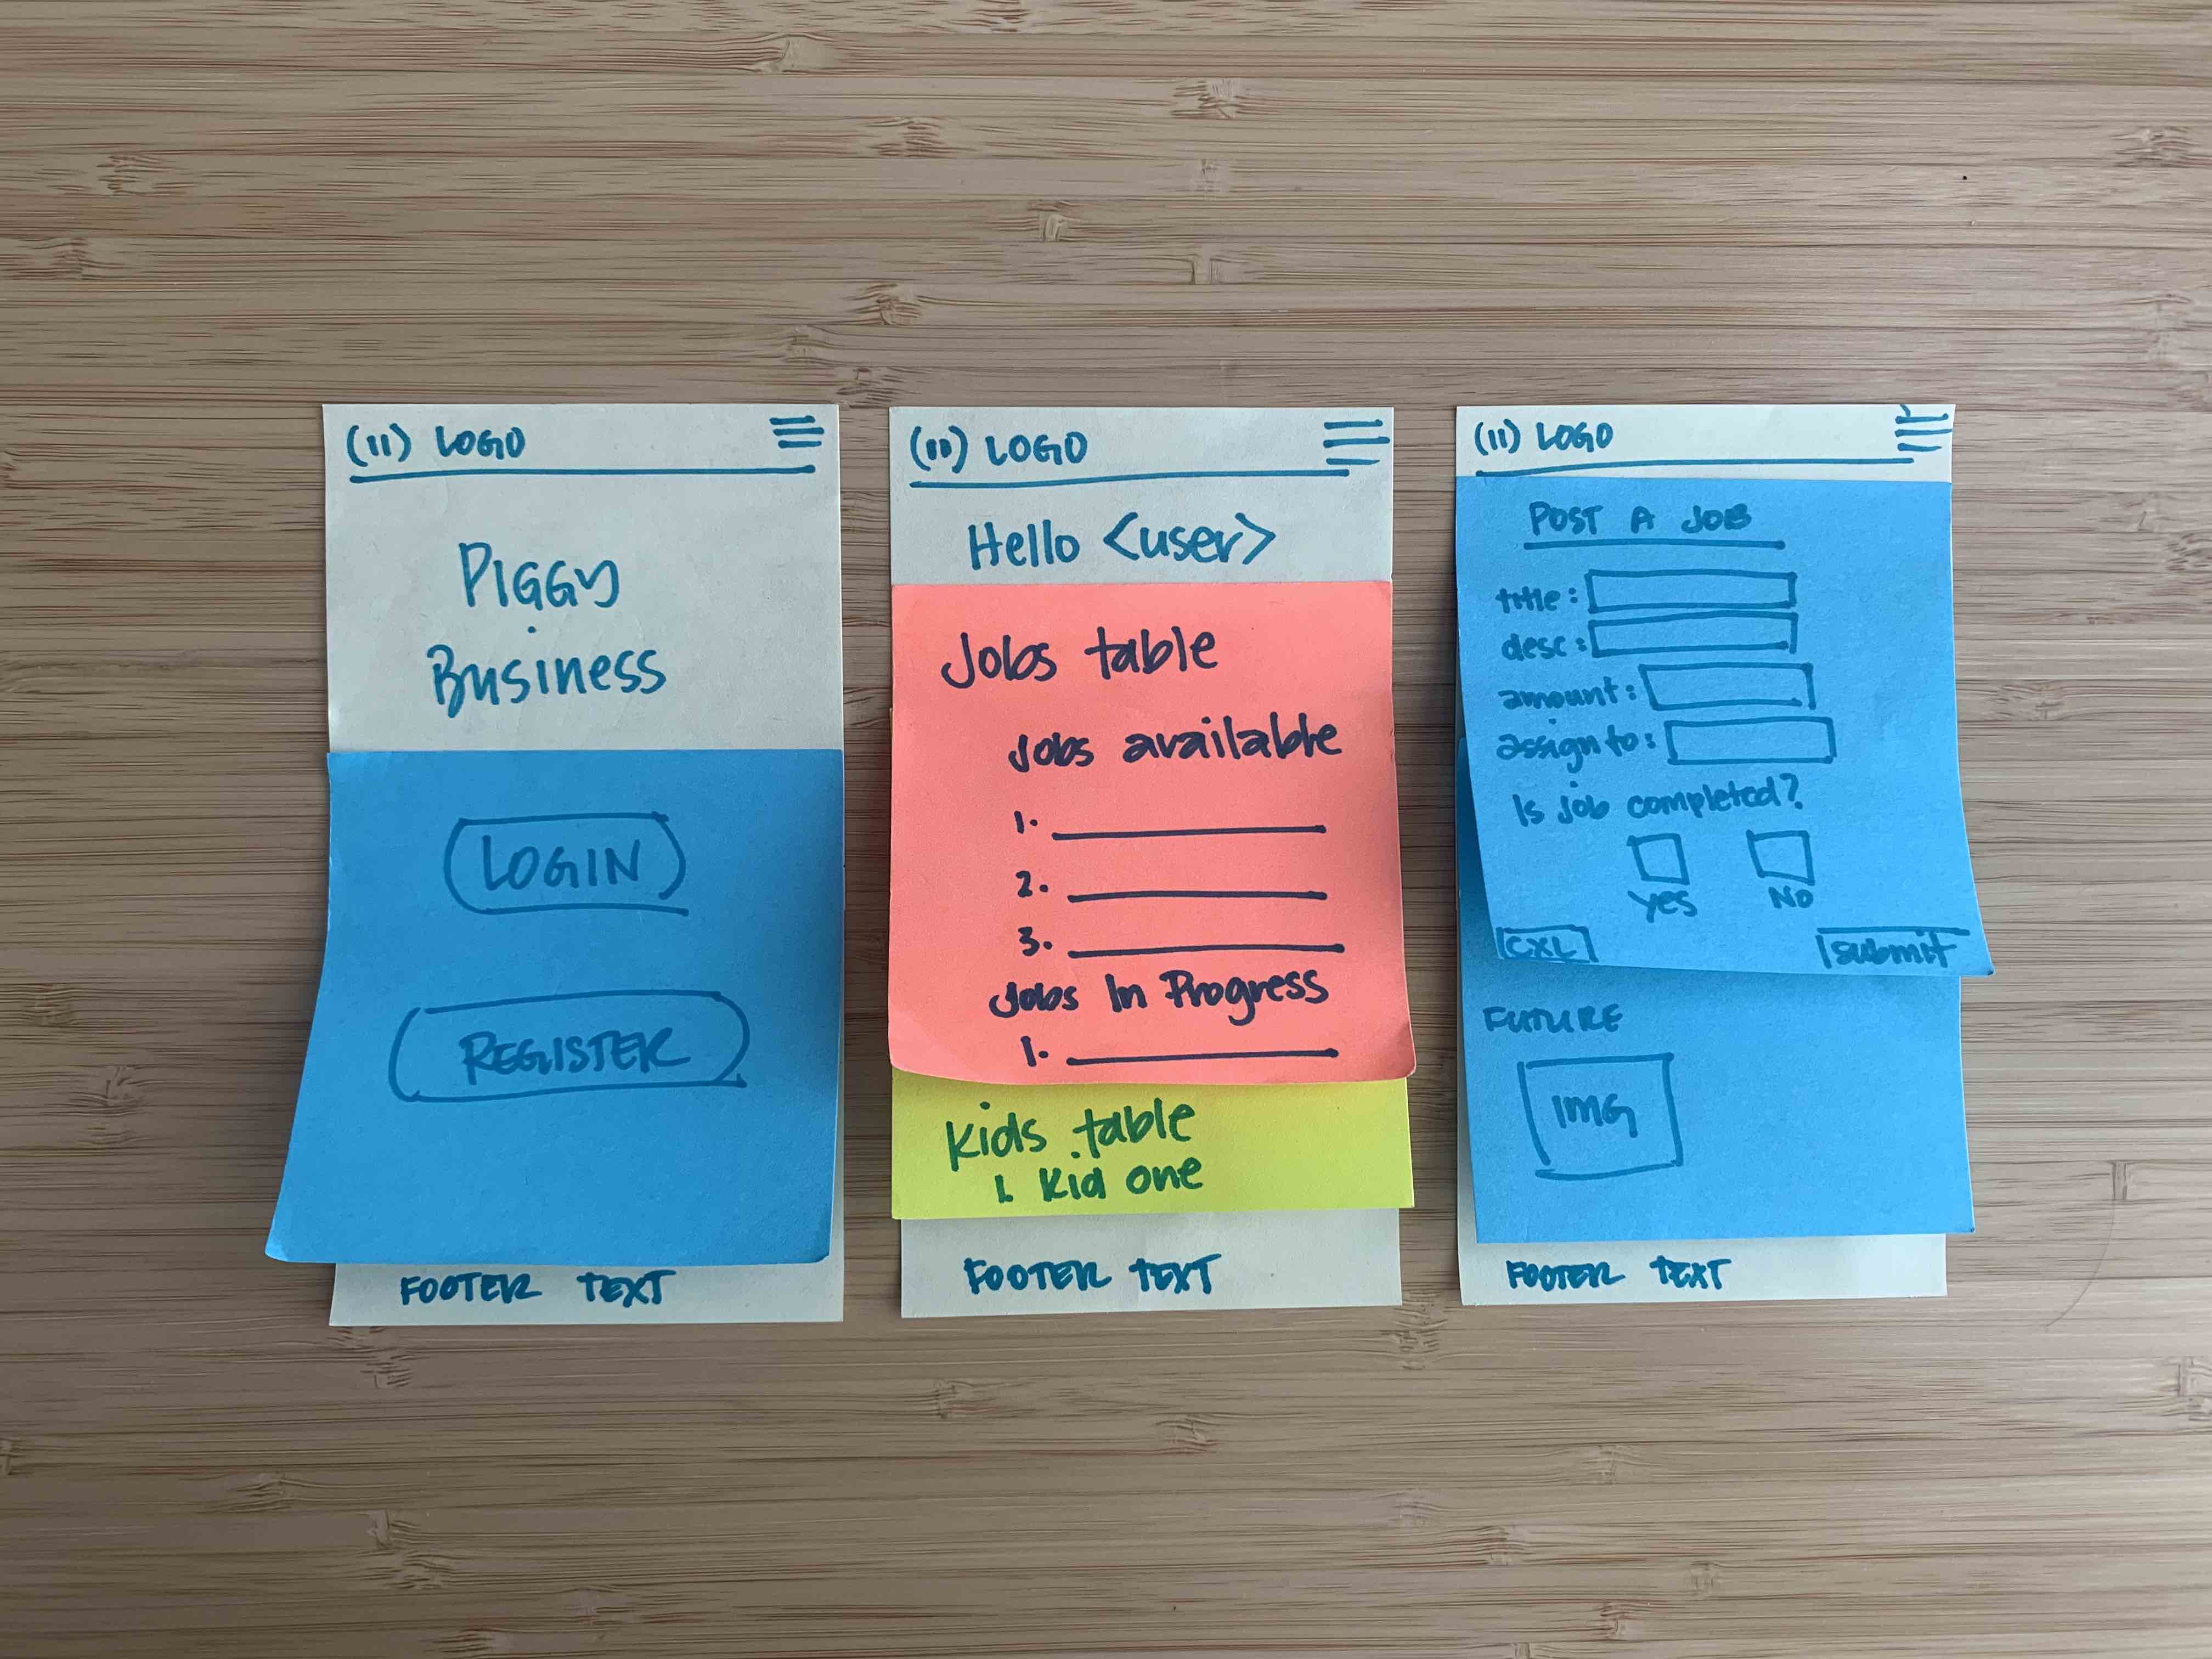 (11) LOGO
PIGGY
BUSINESS
LOGIN
REGISTER
FOOTER TEXT
(11) LOGO
Hello <user>
Jobs table
Jobs available
1.
2.
3.
Jobs In Progress
1.
Kids table
1. Kid one
FOOTER TEXT
(11) LOGO
POST A JOB
title:
desc:
amount:
assign to:
Is job completed?
Yes No
CXL submit
FUTURE
IMG
FOOTER TEXT